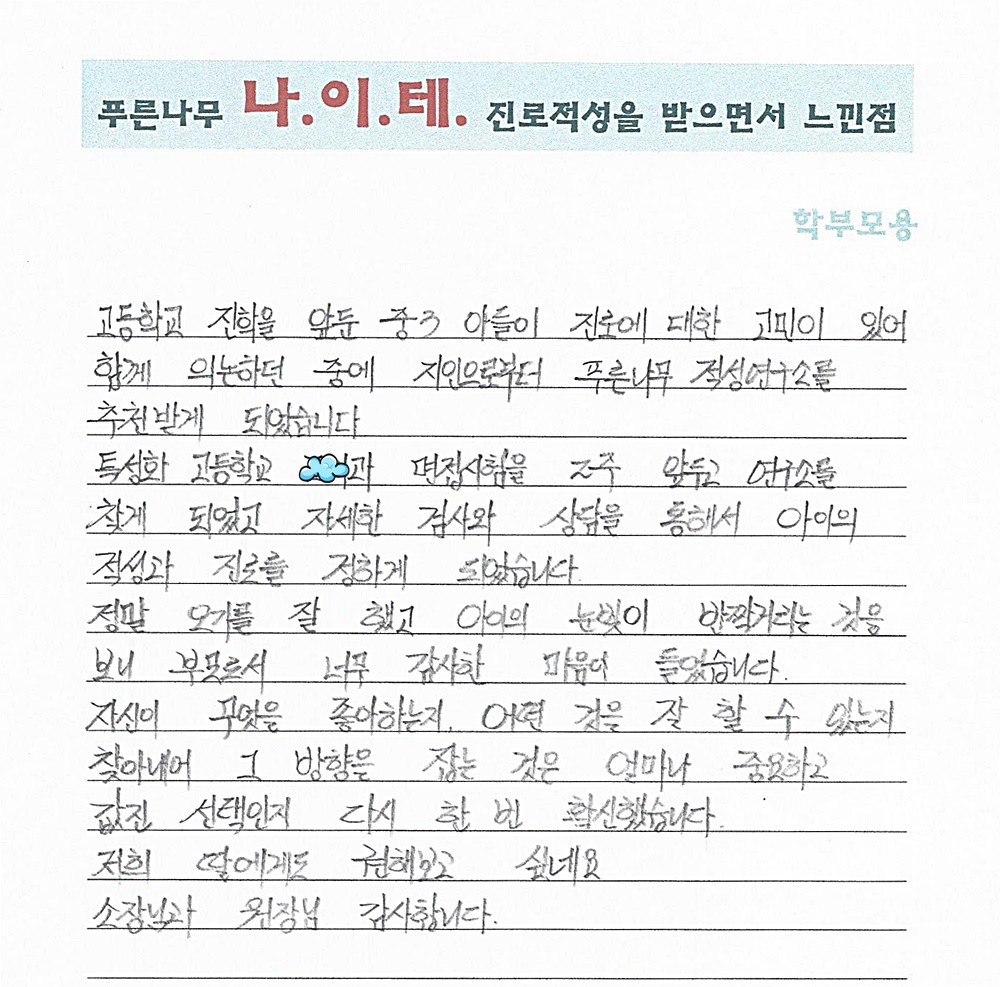 푸른나무 나.이.테. 진로적성을 받으면서 느낀점
학부모용
고등학교 진학을 앞둔 중3 아들이 진로에 대한 고민이 있어
함께 의논하던 중에 지인으로부터 푸른나무 적성연구소를
추천받게 되었습니다
특성화 고등학교 과 면접시험을 2주 앞두고 연구소를
찾게 되었고 자세한 검사와 상담을 통해서 아이의
적성과 진로를 정하게 되었습니다.
정말 오기를 잘 했고 아이의 눈빛이 반짝거리는 것을
보니 부모로서 너무 감사한 마음이 들었습니다.
자신이 무엇을 좋아하는지, 어떤 것을 잘 할 수 있는지
찾아내어 그 방향을 잡는 것은 얼마나 중요하고
값진 선택인지 다시 한 번 확신했습니다.
저희 딸에게도 권해보고 싶네요
소장님과 원장님 감사합니다.